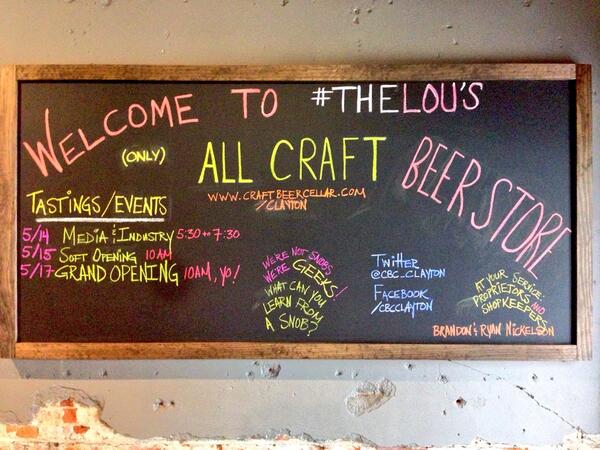 WELCOME TO #THELOU'S
(ONLY) ALL CRAFT BEER STORE
WWW.CRAFTBEERCELLAR.COM
/CLAYTON
TASTINGS/EVENTS
5/14 MEDIA & INDUSTRY 5:30 to 7:30
5/15 SOFT OPENING 10AM
5/17 GRAND OPENING 10AM, yo!
WE'RE NOT SNOBS
WE'RE GEEKS!
WHAT CAN YOU
LEARN FROM
A SNOB?
TWITTER
@CBC_CLAYTON
FACEBOOK
/CBCCLAYTON
AT YOUR SERVICE:
PROPRIETORS AND
SHOPKEEPERS
BRANDON & RYAN NICKELSON